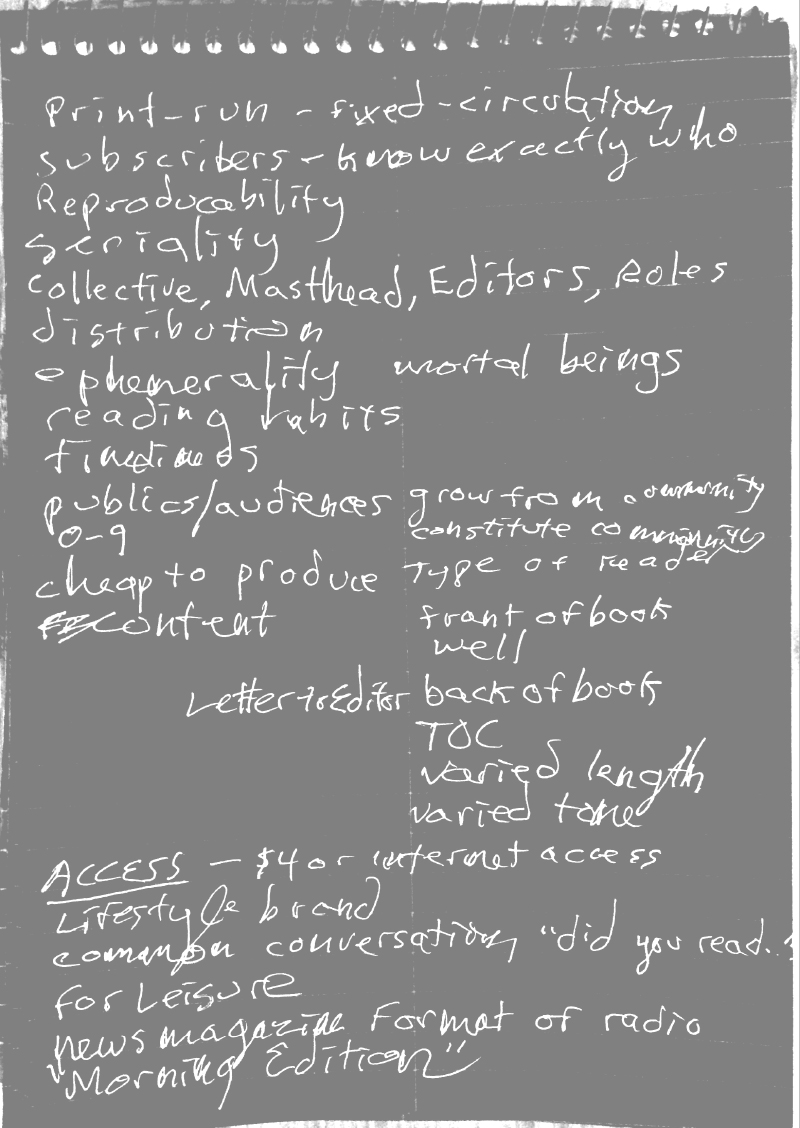 Print-run - fixed-circulation
subscribers - know exactly who
Reproducability
seriality
collective, Masthead, Editors, Roles
distribution
ephemerality mortal beings
reading habits
publics/audiences grow from community
0-9 constitute community
cheap to produce Type of reader
content front of book
well
Letter to Editor back of book
TOC
varied length
varied tone
ACCESS - $4 or internet access
Lifestyle brand
common conversation "did you read..?
for Leisure
newsmagazine Format of radio
"Morning Edition"